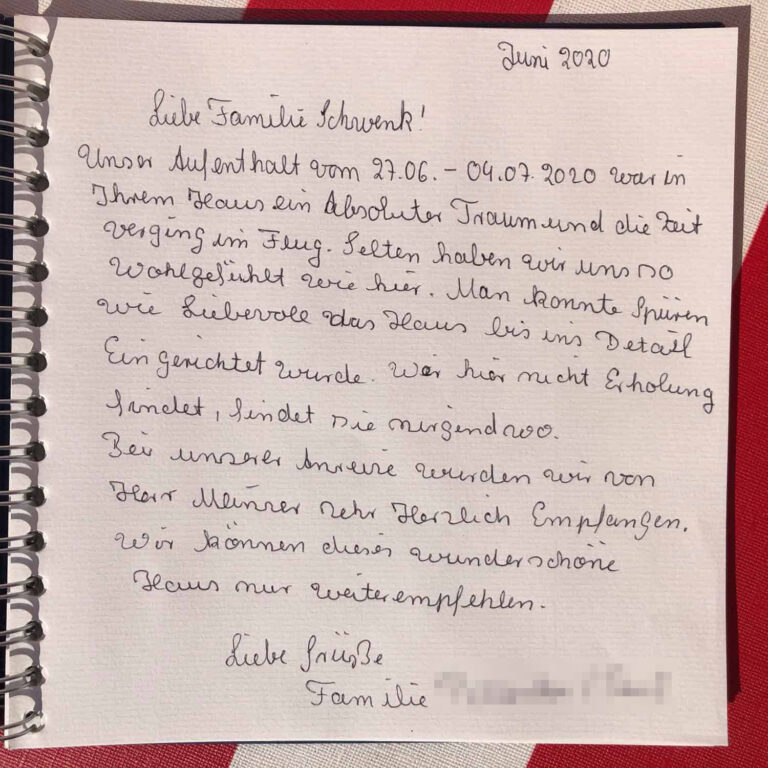 Juni 2020
Liebe Familie Schwenk!
Unser Aufenthalt vom 27.06. – 04.07.2020 war in
Ihrem Haus ein Absoluter Traum und die Zeit
verging im Flug. Selten haben wir uns so
Wohlgefühlt wie hier. Man konnte Spüren
wie Liebevoll das Haus bis ins Detail
Eingerichtet wurde. Wer hier nicht Erholung
findet, findet sie nirgendwo.
Bei unserer Anreise wurden wir von
Herr sehr Herzlich Empfangen.
Wir können dieses wunderschöne
Haus nur weiterempfehlen.
Liebe Grüße
Familie